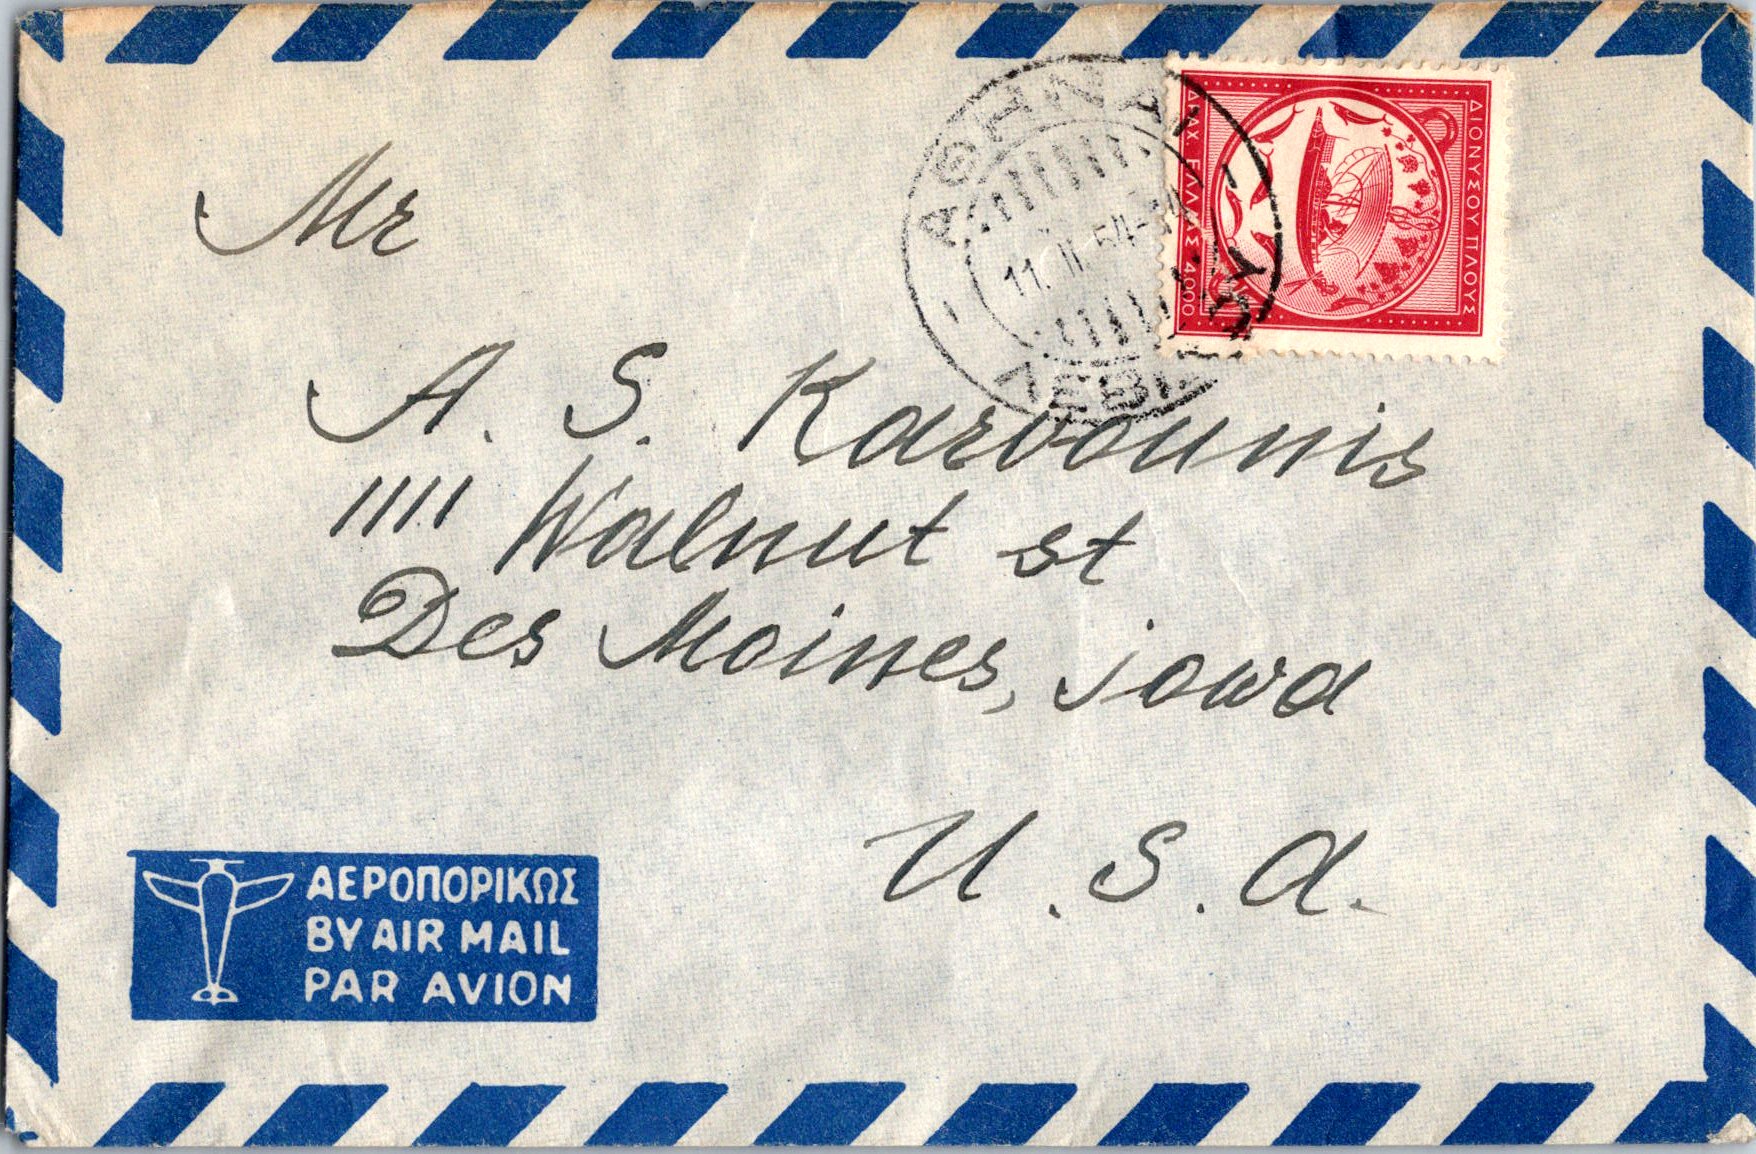 ΑΘΗΝΑΙ
11. II 54-
ΔΙΟΝΥΣΟΥ ΠΛΟΥΣ
ΔΡΑΧ ΕΛΛΑΣ 4.000
Mr
A. S. Karvounis
1111 Walnut st
Des Moines, iowa
U. S. A.
ΑΕΡΟΠΟΡΙΚΩΣ
BY AIR MAIL
PAR AVION